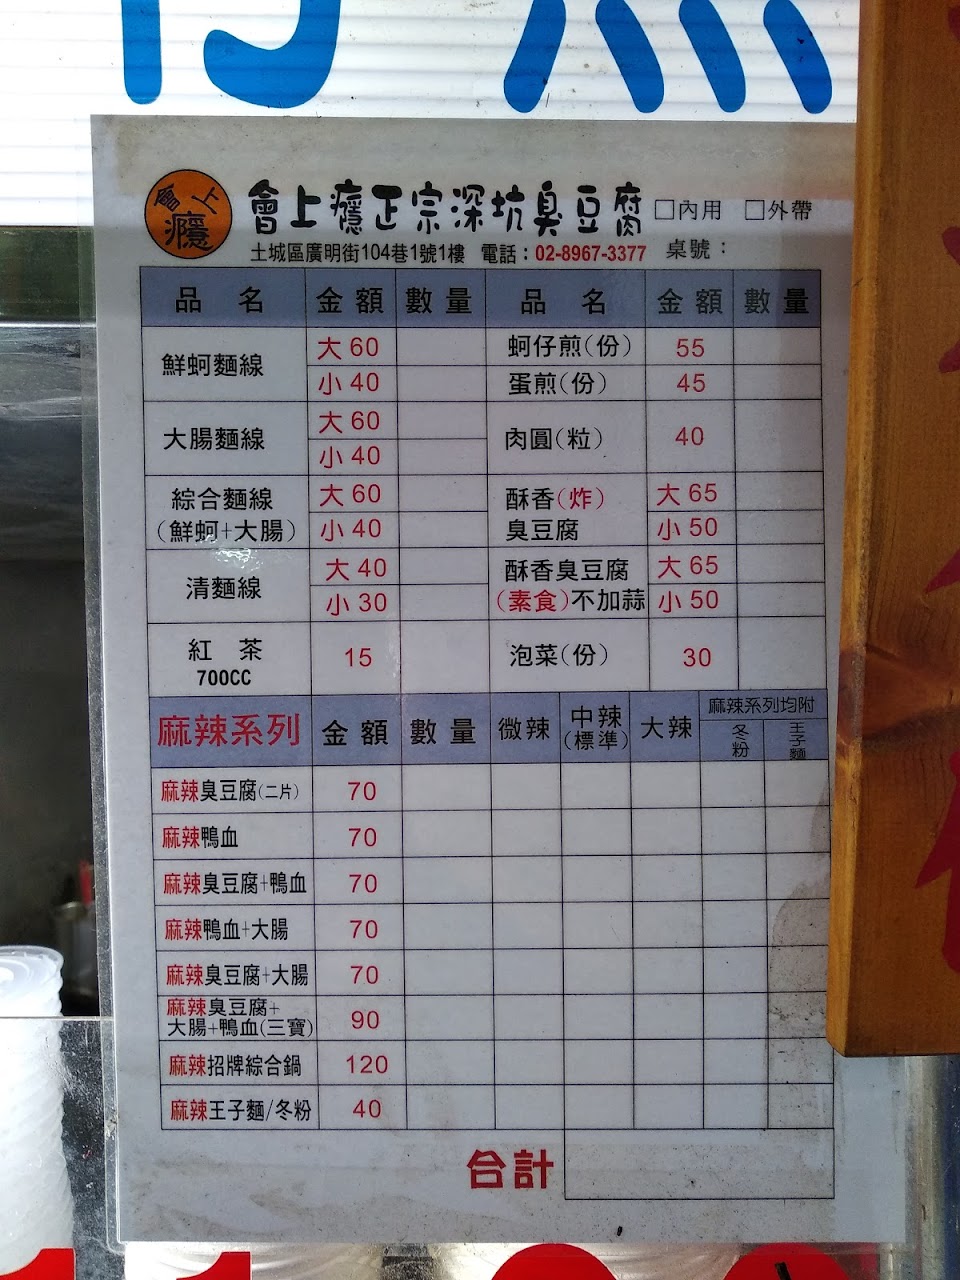 會上癮
會上癮正宗深坑臭豆腐 □內用 □外帶
土城區廣明街104巷1號1樓 電話：02-8967-3377 桌號：
品 名 金額 數量 品 名 金額 數量
鮮蚵麵線 大 60 蚵仔煎(份) 55
小 40 蛋煎(份) 45
大腸麵線 大 60 肉圓(粒) 40
小 40
綜合麵線 大 60 酥香(炸) 大 65
(鮮蚵+大腸) 小 40 臭豆腐 小 50
清麵線 大 40 酥香臭豆腐 大 65
小 30 (素食)不加蒜 小 50
紅 茶 15 泡菜(份) 30
700CC
麻辣系列 金額 數量 微辣 中辣 大辣 麻辣系列均附
(標準) 冬粉 王子麵
麻辣臭豆腐(二片) 70
麻辣鴨血 70
麻辣臭豆腐+鴨血 70
麻辣鴨血+大腸 70
麻辣臭豆腐+大腸 70
麻辣臭豆腐+
大腸+鴨血(三寶) 90
麻辣招牌綜合鍋 120
麻辣王子麵/冬粉 40
合計